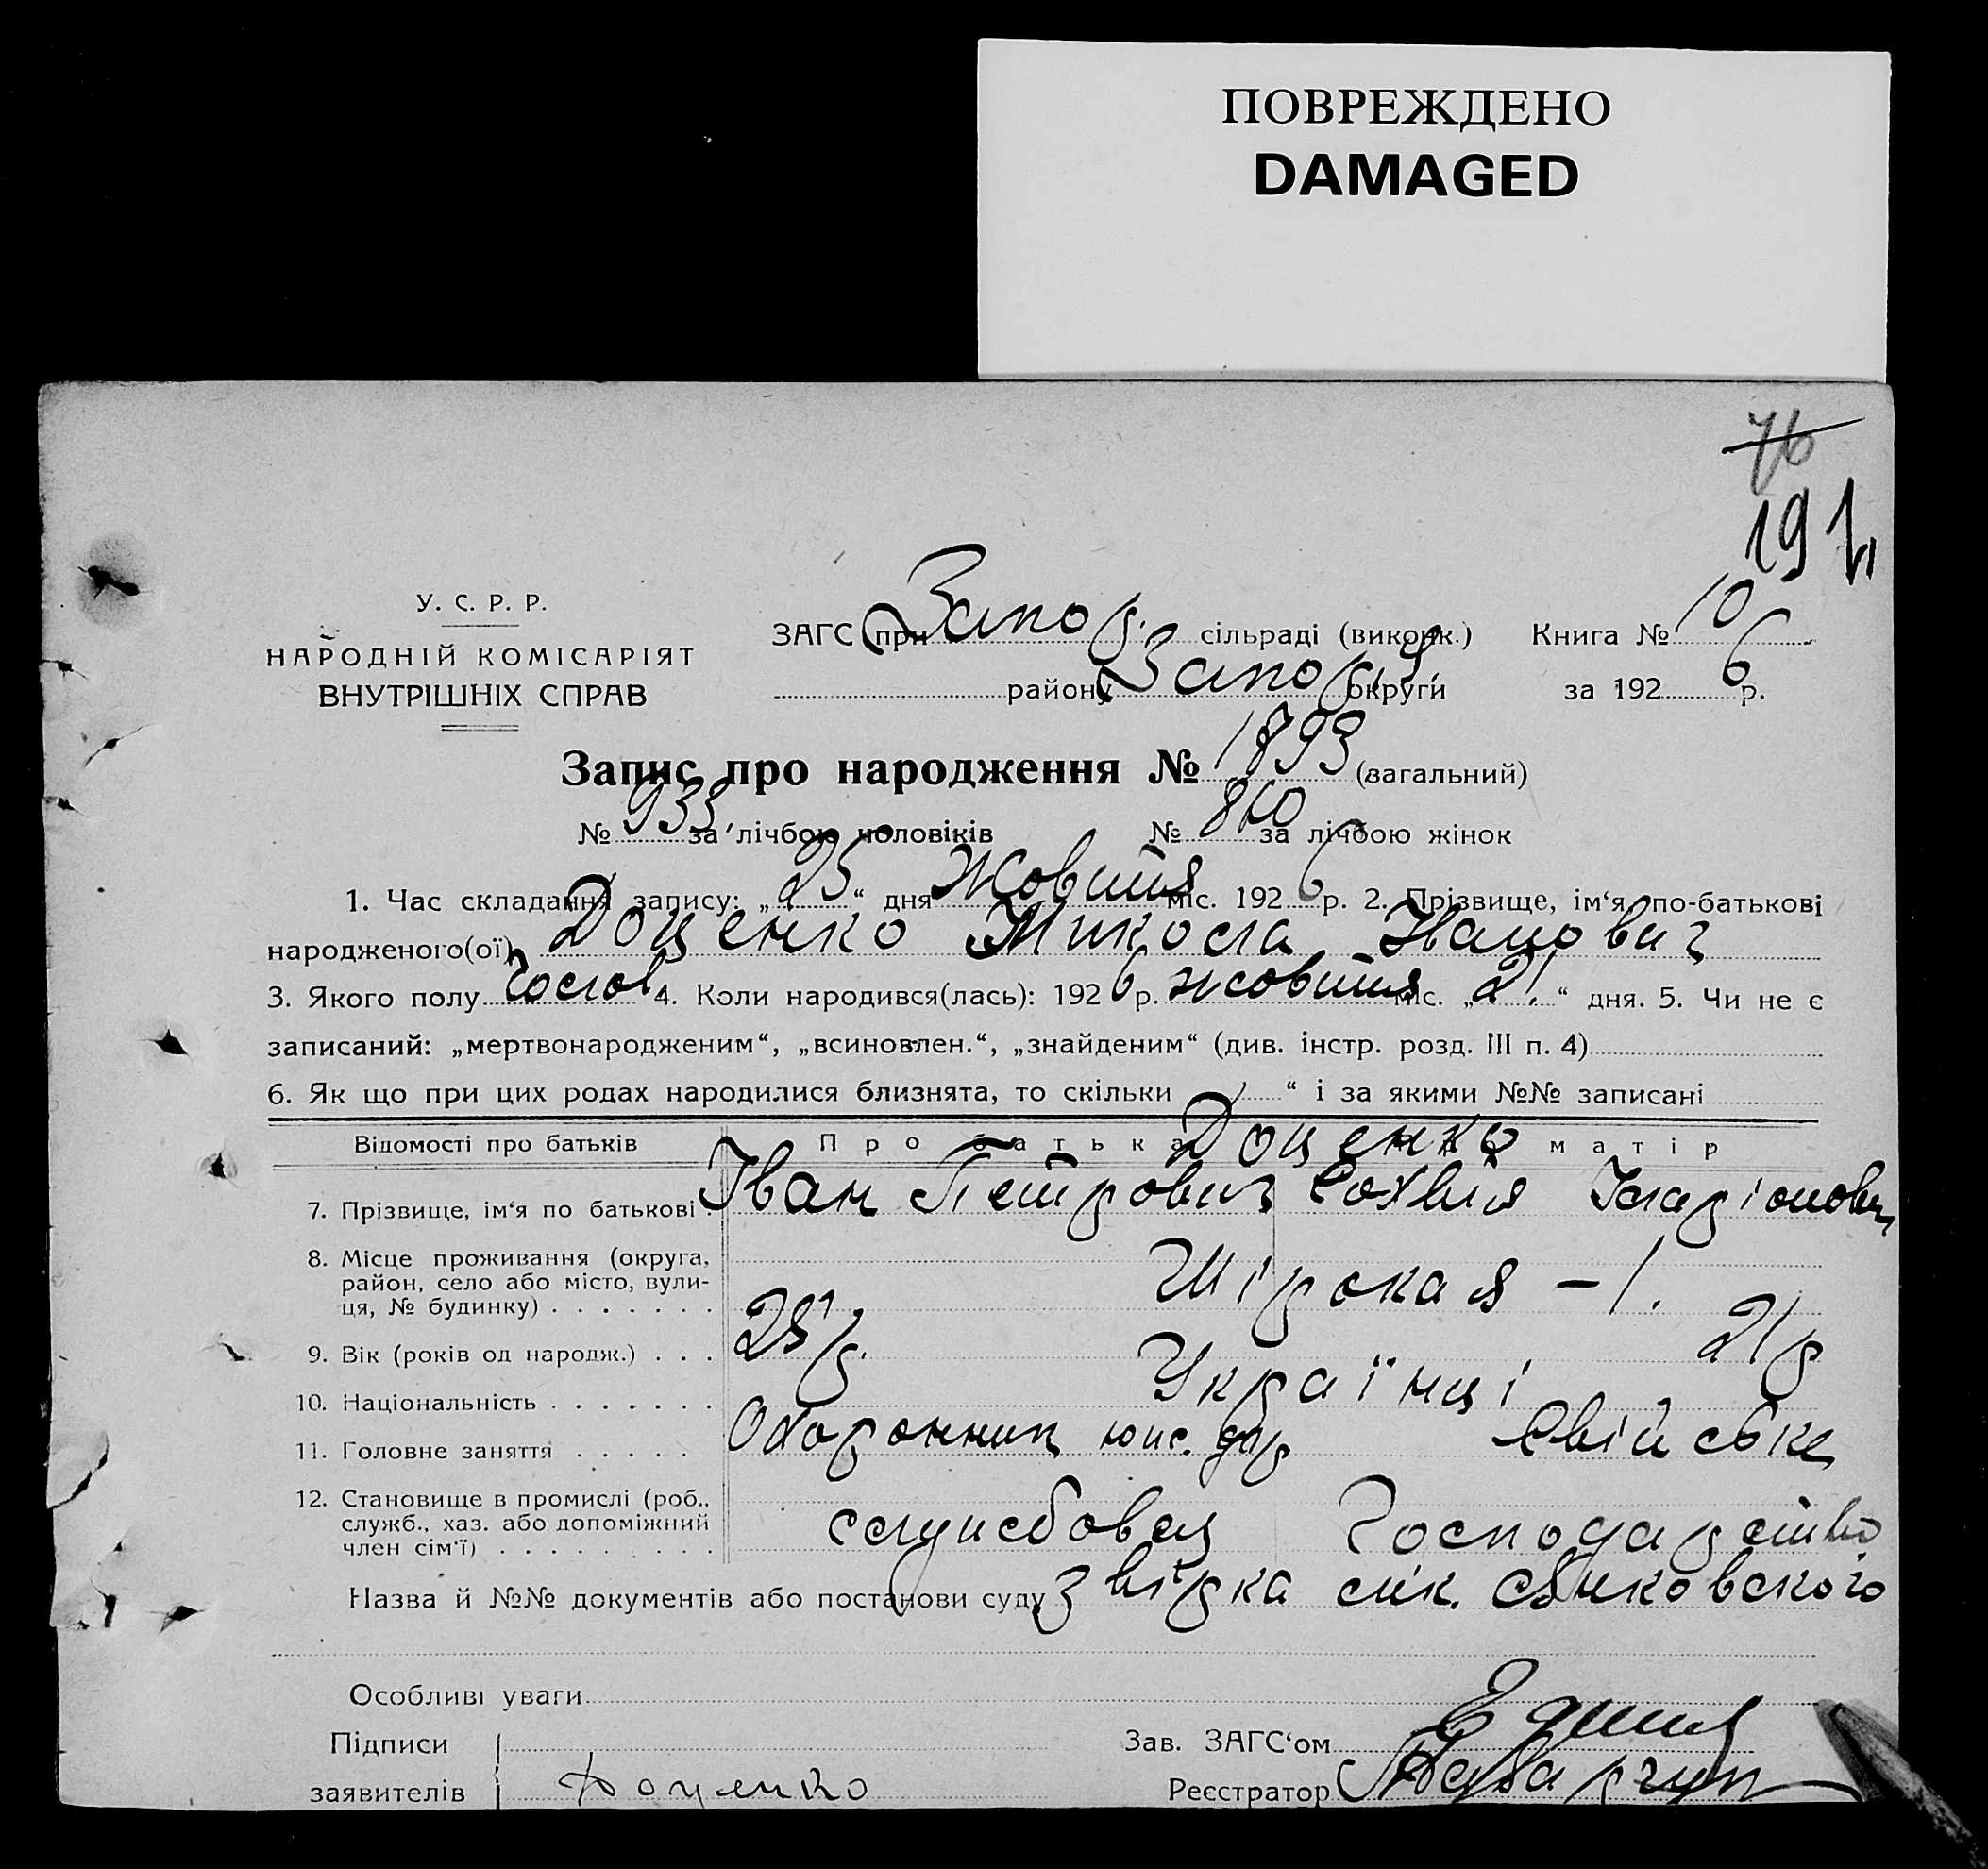 ПОВРЕЖДЕНО
DAMAGED
76
191
У. С. Р. Р.
НАРОДНІЙ КОМІСАРІЯТ
ВНУТРІШНІХ СПРАВ
ЗАГС при Запор. сільраді (виконк.) Книга № 10
району Запор. округи за 1926 р.
Запис про народження № 1893 (загальний)
№ 933 за лічбою чоловіків № 860 за лічбою жінок
1. Час складання запису: „25“ дня Жовтня міс. 1926 р. 2. Прізвище, ім‘я, по-батькові
народженого(ої) Доценко Микола Іванович
3. Якого полу чолов. 4. Коли народився(лась): 1926 р. жовтня міс. „21“ дня. 5. Чи не є
записаний: „мертвонародженим“, „всиновлен.“, „знайденим“ (див. інстр. розд. III п. 4)
6. Як що при цих родах народилися близнята, то скільки “ і за якими №№ записані
Відомості про батьків Про батька матір
Доценко
7. Прізвище, ім‘я по батькові Іван Петрович Софія Іларіоновн
8. Місце проживання (округа, район, село або місто, вулиця, № будинку) Шірокая – 1.
9. Вік (років од народж.) 25 р. 21 р
10. Національність Українці
11. Головне заняття Охоронник Свійське
12. Становище в промислі (роб., служб., хаз. або допоміжний член сім‘ї) службовец Господарство
Назва й №№ документів або постанови суду звірка
Особливі уваги
Підписи
заявителів Доценко
Зав. ЗАГС‘ом
Реєстратор